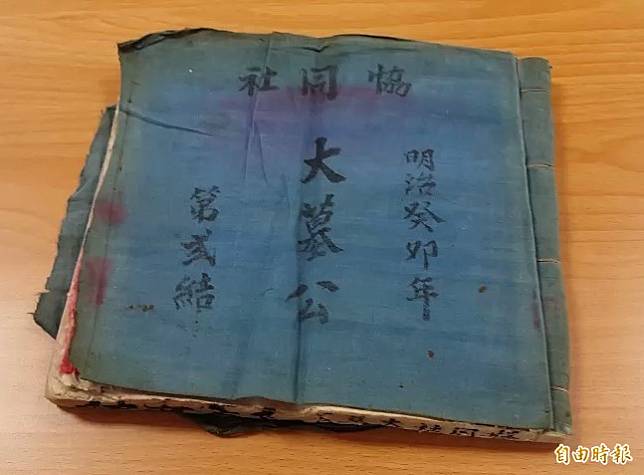 協同社
明治癸卯年
大墓公
第弍結
自由時報